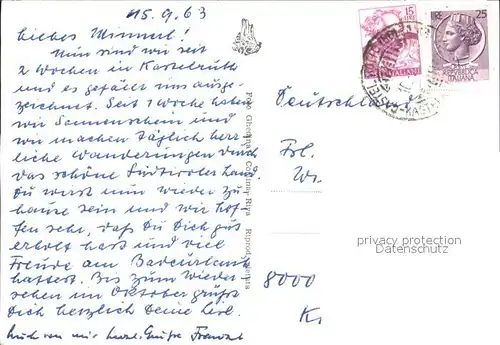 15.9.63
Liebes Minnerl!
Nun sind wir seit
2 Wochen in Kastelruth
und es gefällt uns ausge-
zeichnet. Seit 1 Woche haben
wir Sonnenschein und
wir machen täglich herr-
liche Wanderungen durch
das schöne Südtiroler Land.
Du wirst nun wieder zu
hause sein und wir hof-
fen sehr, daß Du Dich gut
erholt hast und viel
Freude am Badeurlaub
hattest. Bis zum Wieder-
sehen im Oktober grüßt
Dich herzlich Deine
Auch von mir herzl. Grüße
Foto Ghedina - Riva Riprod. vietata
15
LIRE
ITALIANE
LIRE 25
REPUBBLICA
ITALIANA
Deutschland
Frl.
8000
privacy protection
Datenschutz